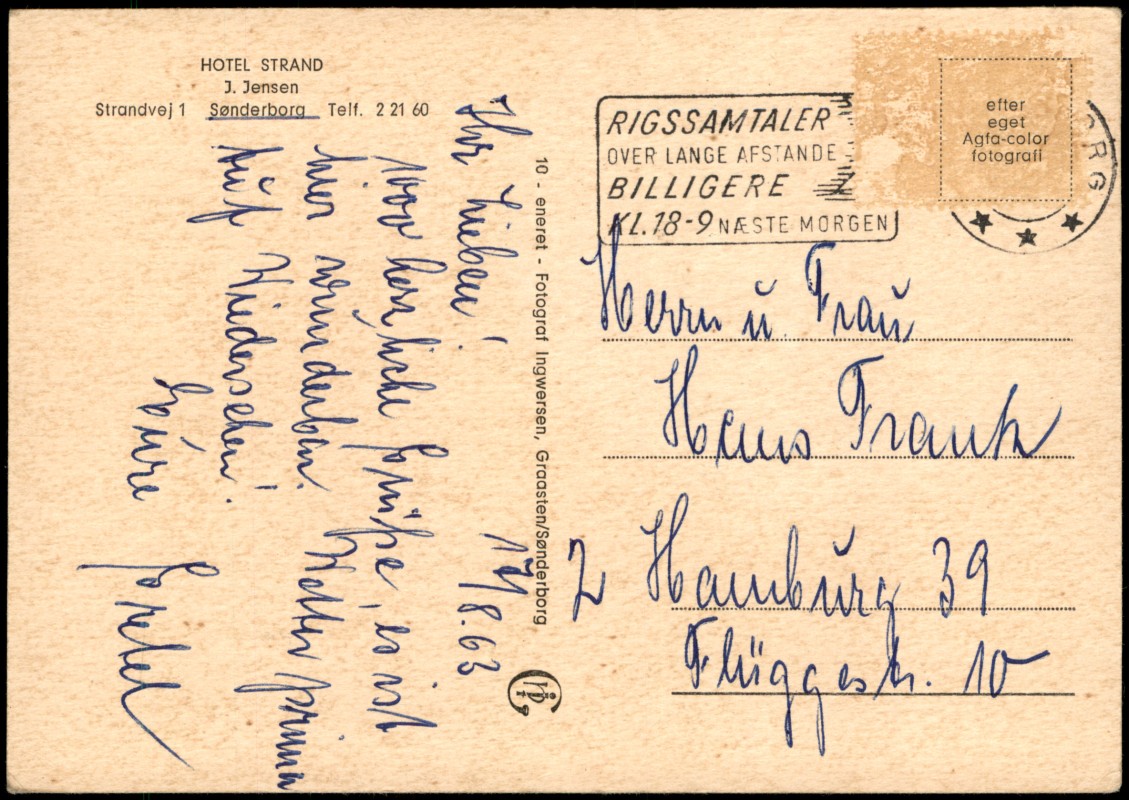 HOTEL STRAND
J. Jensen
Strandvej 1 Sønderborg Telf. 2 21 60
Ihr Lieben!
17/8.63
1000 herzliche Grüße, es ist
hier wunderbar. Wetter prima
Auf Wiedersehen!
Eure Gretel
10 - eneret - Fotograf Ingwersen, Graasten/Sønderborg
RIGSSAMTALER
OVER LANGE AFSTANDE
BILLIGERE
KL. 18-9 NÆSTE MORGEN
efter
eget
Agfa-color
fotografi
ORG
Herrn u. Frau
Hans Frank
2 Hamburg 39
Flüggestr. 10